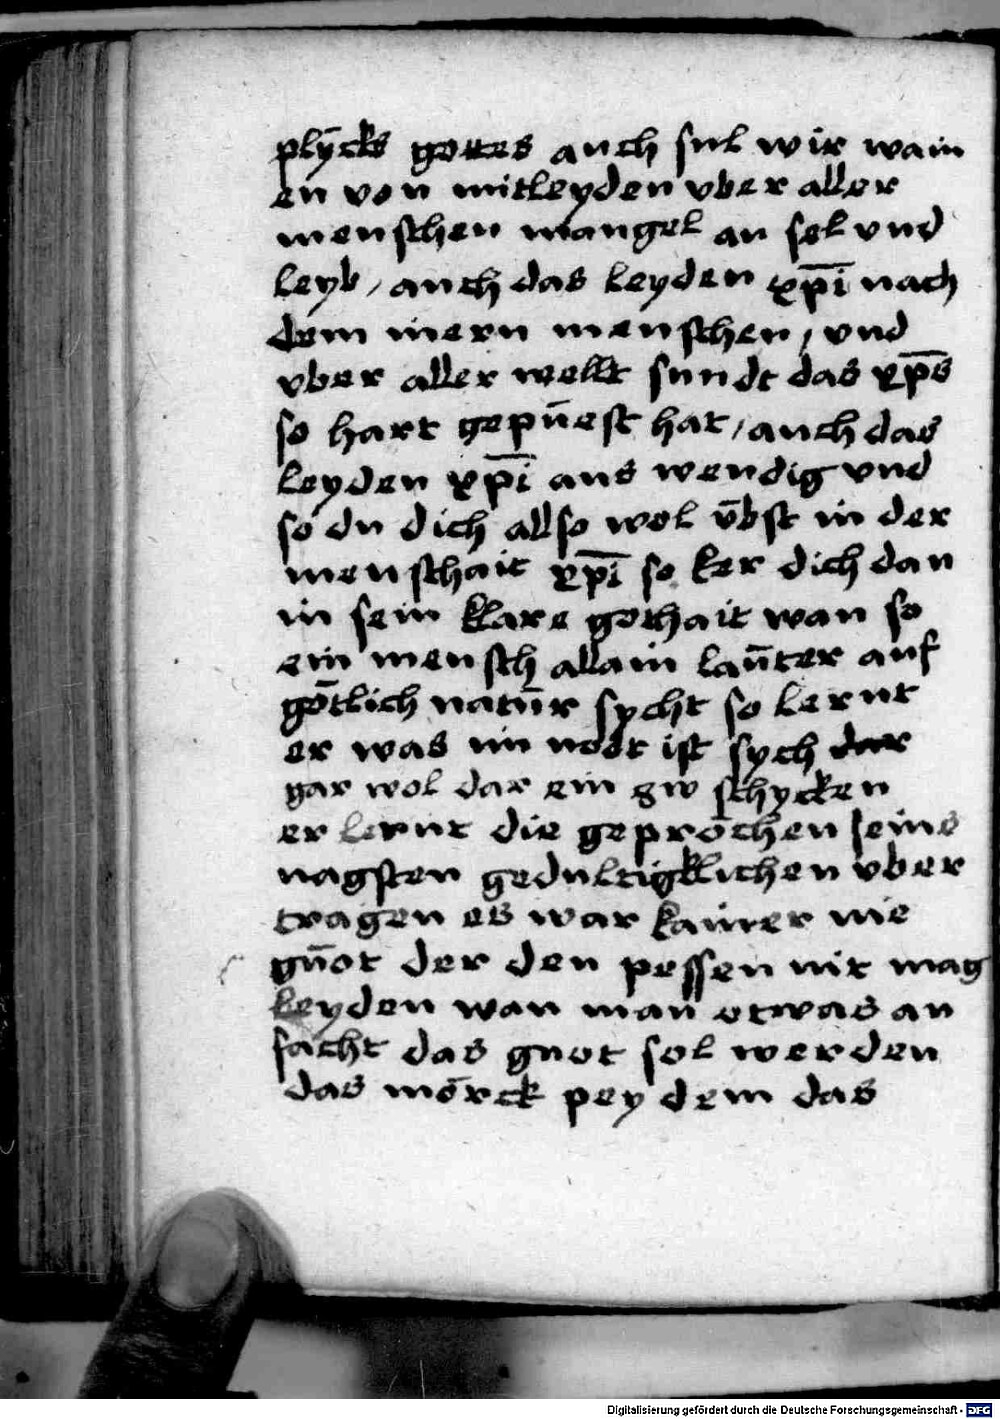 plȳcks gottes auch sul wir wain
en von mitleyden vber aller
menschen mangel an sel vnd
leyb / auch das leyden xp̄i nach
dem inern menschen / vnd
vber aller wellt sundt das xp̄s
so hart gepūest hat / auch das
leyden xp̄i aus wendig vnd
so du dich allso wol v̄bst in der
menschait xp̄i so ker dich dan
in sein klare gothait wan so
ein mensch allain laūter auf
gōtlich natūr sycht so lernt
er was im nodt ist sych dar
gar wol dar ein zw schycken
er lernt die geprōchen seins
nagsten gedultigklichen vber
tragen es war kainer nie
gūot der den pessen nit mag
leyden wan man etwas an
facht das guot sol werden
das mōrck pey dem das
Digitalisierung gefördert durch die Deutsche Forschungsgemeinschaft - DFG